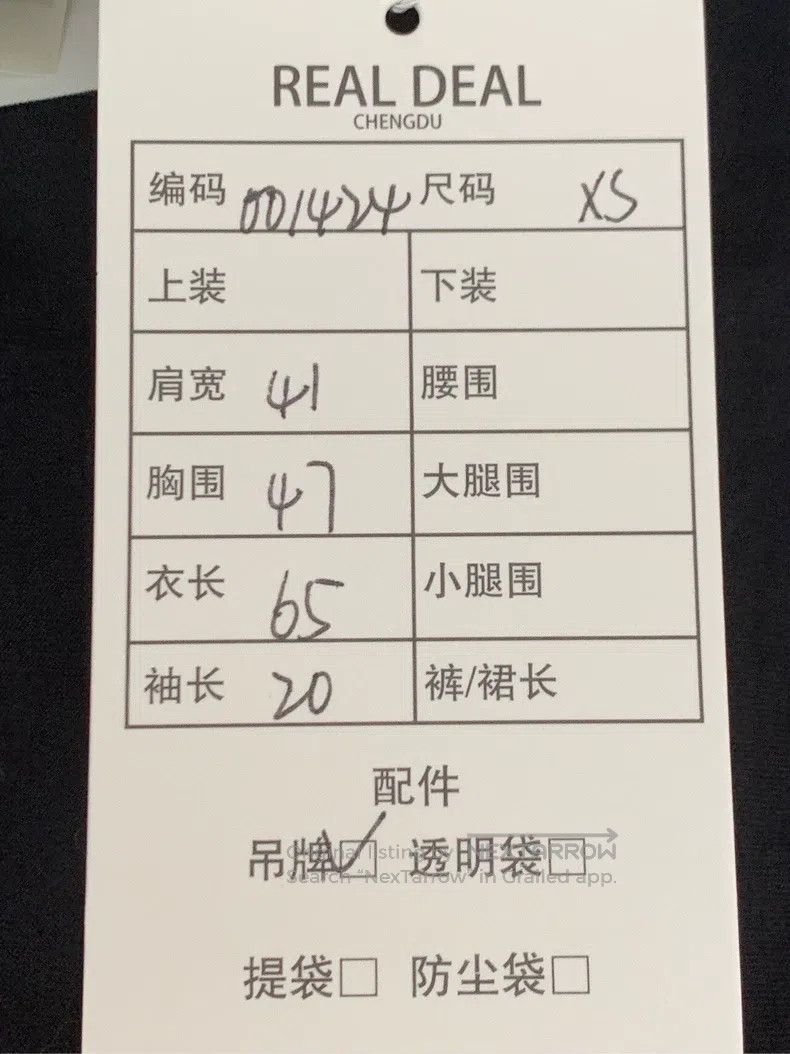 REAL DEAL
CHENGDU
编码 001424 尺码 XS
上装 下装
肩宽 41 腰围
胸围 47 大腿围
衣长 65 小腿围
袖长 20 裤/裙长
配件
吊牌 透明袋
Original listing by NEXTARROW
Search "NexTarrow" in Grailed app.
提袋 防尘袋